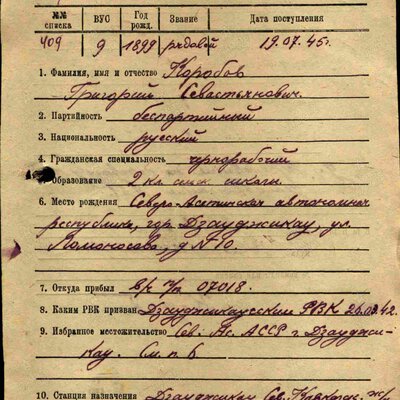 №№ списка ВУС Год рожд. Звание Дата поступления
409 9 1899 рядовой 19.07.45г.
1. Фамилия, имя и отчество Коробов
Григорий Севастьянович.
2. Партийность беспартийный
3. Национальность русский
4. Гражданская специальность чернорабочий
5. Образование 2 кл. сельск. школы.
6. Место рождения Северо-Осетинская автономная
республика, гор. Дзауджикау, ул.
Ломоносова, д № 10.
7. Откуда прибыл в/ч п/п 07018.
8. Каким РВК призван Дзауджикаусским РВК 42.
9. Избранное местожительство Сев. Ос. АССР г. Дзауджи-
кау. См. п. 6
10. Станция назначения Дзауджикау Сев. Кавказ. ж/